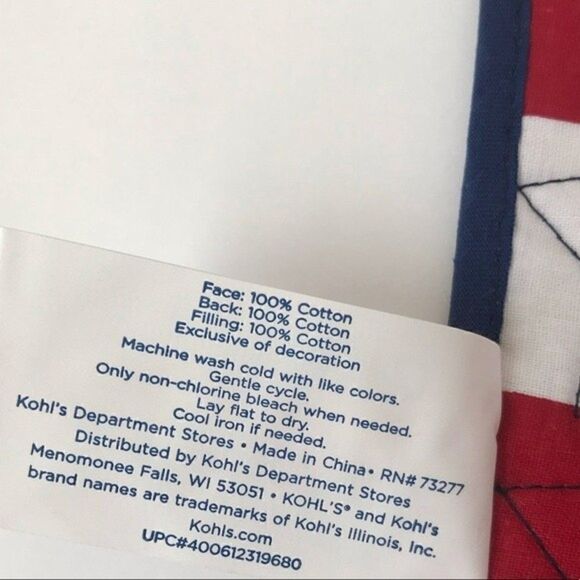 Face: 100% Cotton
Back: 100% Cotton
Filling: 100% Cotton
Exclusive of decoration
Machine wash cold with like colors.
Gentle cycle.
Only non-chlorine bleach when needed.
Lay flat to dry.
Cool iron if needed.
Kohl's Department Stores • Made in China• RN# 73277
Distributed by Kohl's Department Stores
Menomonee Falls, WI 53051 • KOHL'S® and Kohl's
brand names are trademarks of Kohl's Illinois, Inc.
Kohls.com
UPC#400612319680